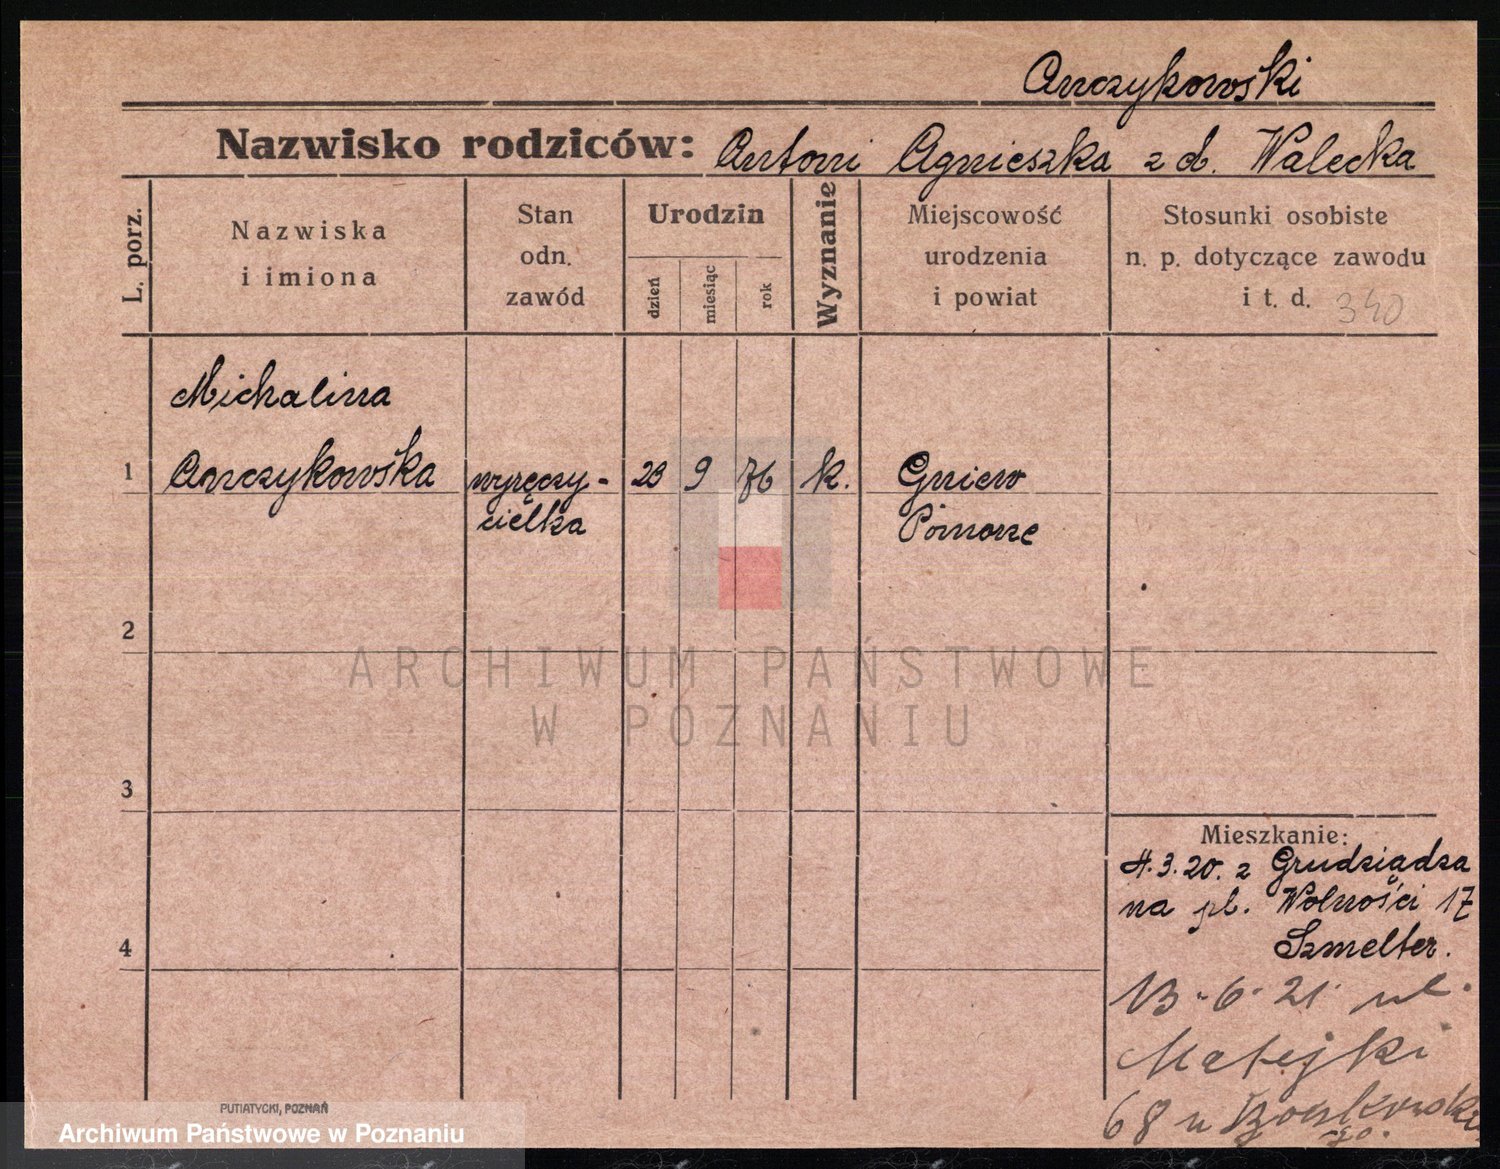 Anczykowski
Nazwisko rodziców: Antoni Agnieszka z d. Walecka
L. porz.
Nazwiska
i imiona
Stan
odn.
zawód
Urodzin
dzień
miesiąc
rok
Wyznanie
Miejscowość
urodzenia
i powiat
Stosunki osobiste
n. p. dotyczące zawodu
i t. d. 340
Michalina
1 Anczykowska wyręczy- 23 9 76 k. Gniew
cielka Pomorze
2
ARCHIWUM PAŃSTWOWE
W POZNANIU
3
Mieszkanie:
4.3.20. z Grudziądza
na pl. Wolności 17
4 Szmelter.
13.6.21. ul.
Matejki
68 u
PUTIATYCKI, POZNAŃ
Archiwum Państwowe w Poznaniu